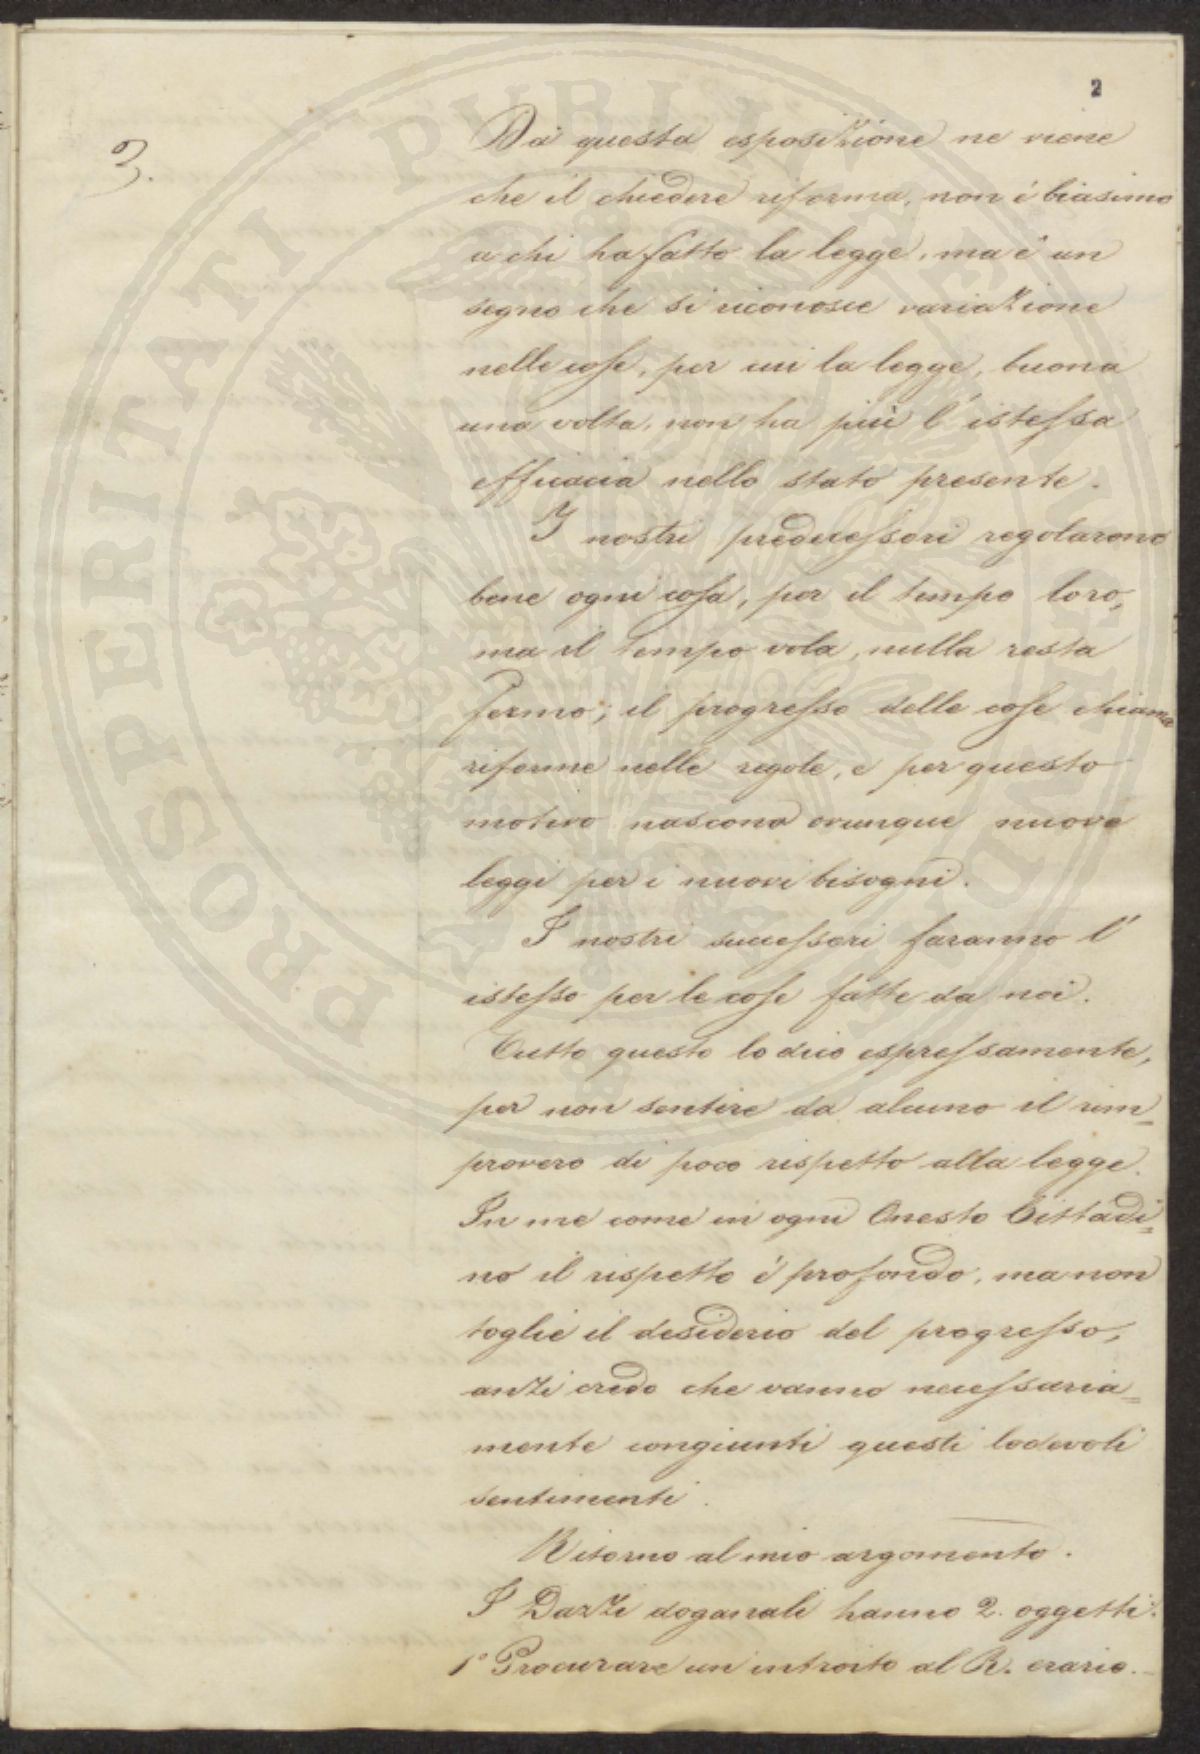 2
3.
Da questa esposizione ne viene
che il chiedere riforma, non è biasimo
a chi ha fatto la legge, ma è un
segno che si riconosce variazione
nelle cose, per cui la legge, buona
una volta, non ha più l'istessa
efficacia nello stato presente.
I nostri predecessori regolarono
bene ogni cosa, per il tempo loro,
ma il tempo vola, nulla resta
fermo; il progresso delle cose chiama
riforme nelle regole, e per questo
motivo nascono ovunque nuove
leggi per i nuovi bisogni.
I nostri successori faranno l'
istesso per le cose fatte da noi.
Tutto questo lo dico espressamente,
per non sentire da alcuno il rim=
provero di poco rispetto alla legge.
In me come in ogni Onesto Cittadi=
no il rispetto è profondo, ma non
toglie il desiderio del progresso,
anzi credo che vanno necessaria=
mente congiunti questi lodevoli
sentimenti.
Ritorno al mio argomento.
I Dazzi doganali hanno 2. oggetti:
1° Procurare un introito al R. erario.
PROSPERITATI PUBLICAE